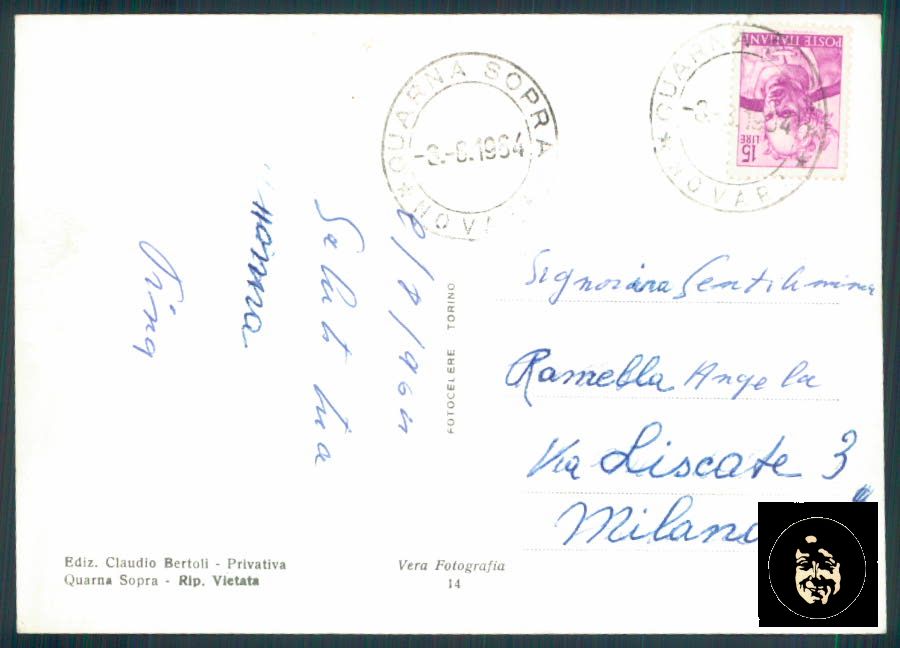 QUARNA SOPRA
-8.-8.1964
* NOVARA
QUARNA
-8.-8.1964
* NOVAR
POSTE ITALIANE
15 LIRE
Saluti tua
nonna
Tina
FOTOCELERE TORINO
Signorina Gentilissima
Ramella Angela
Via Liscate 3
Milano
Ediz. Claudio Bertoli - Privativa
Quarna Sopra - Rip. Vietata
Vera Fotografia
14